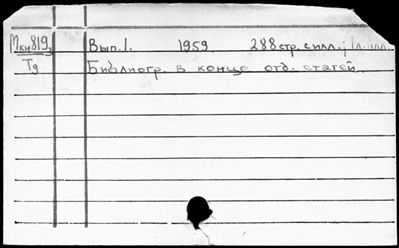 Мкн819
Вып.1. 1959. 288 стр. с илл.; 1 л. илл.
Тд
Библиогр. в конце отд. статей.